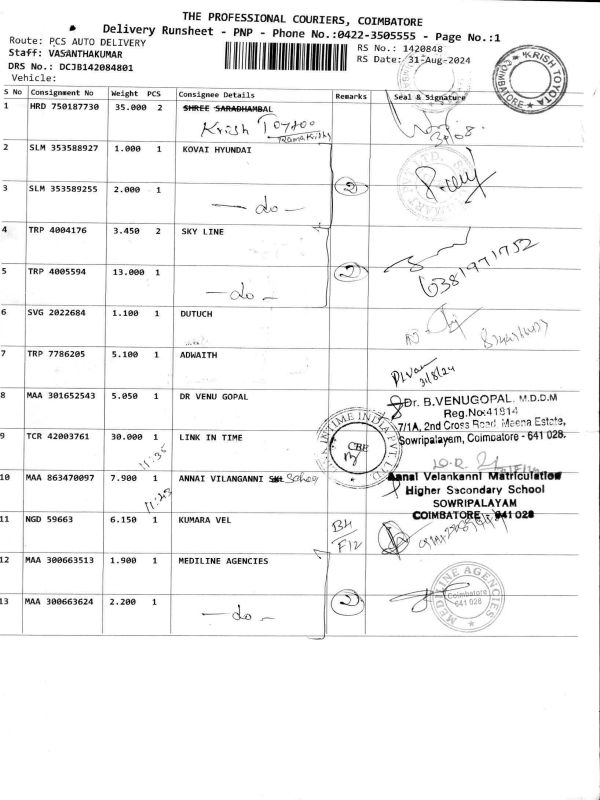 THE PROFESSIONAL COURIERS, COIMBATORE
Delivery Runsheet - PNP - Phone No.:0422-3505555 - Page No.:1
Route: PCS AUTO DELIVERY
RS No.: 1420848
Staff: VASANTHAKUMAR
RS Date: 31-Aug-2024
DRS No.: DCJB142084801
Vehicle:
KRISH TOYOTA
COIMBATORE
S No Consignment No Weight PCS Consignee Details Remarks Seal & Signature
1 HRD 750187730 35.000 2 SHREE SARADHAMBAL
Krish
2 SLM 353588927 1.000 1 KOVAI HYUNDAI
3 SLM 353589255 2.000 1
- do - 2
4 TRP 4004176 3.450 2 SKY LINE
5 TRP 4005594 13.000 1 2
- do -
6381971752
6 SVG 2022684 1.100 1 DUTUCH
7 TRP 7786205 5.100 1 ADWAITH
31/8/24
8 MAA 301652543 5.050 1 DR VENU GOPAL
Dr. B.VENUGOPAL. M.D.D.M
Reg.No:41814
7/1A, 2nd Cross Road. Meena Estate,
Sowripalayam, Coimbatore - 641 028.
9 TCR 42003761 30.000 1 LINK IN TIME
11:35
LINK INTIME INDIA PVT. LTD
CBE
10 MAA 863470097 7.900 1 ANNAI VILANGANNI
11:43
Annai Velankanni Matriculation
Higher Secondary School
SOWRIPALAYAM
COIMBATORE - 641 028
11 NGD 59663 6.150 1 KUMARA VEL
B4
F12
12 MAA 300663513 1.900 1 MEDILINE AGENCIES
13 MAA 300663624 2.200 1
- do - 2
MEDILINE AGENCIES
Coimbatore
641 028